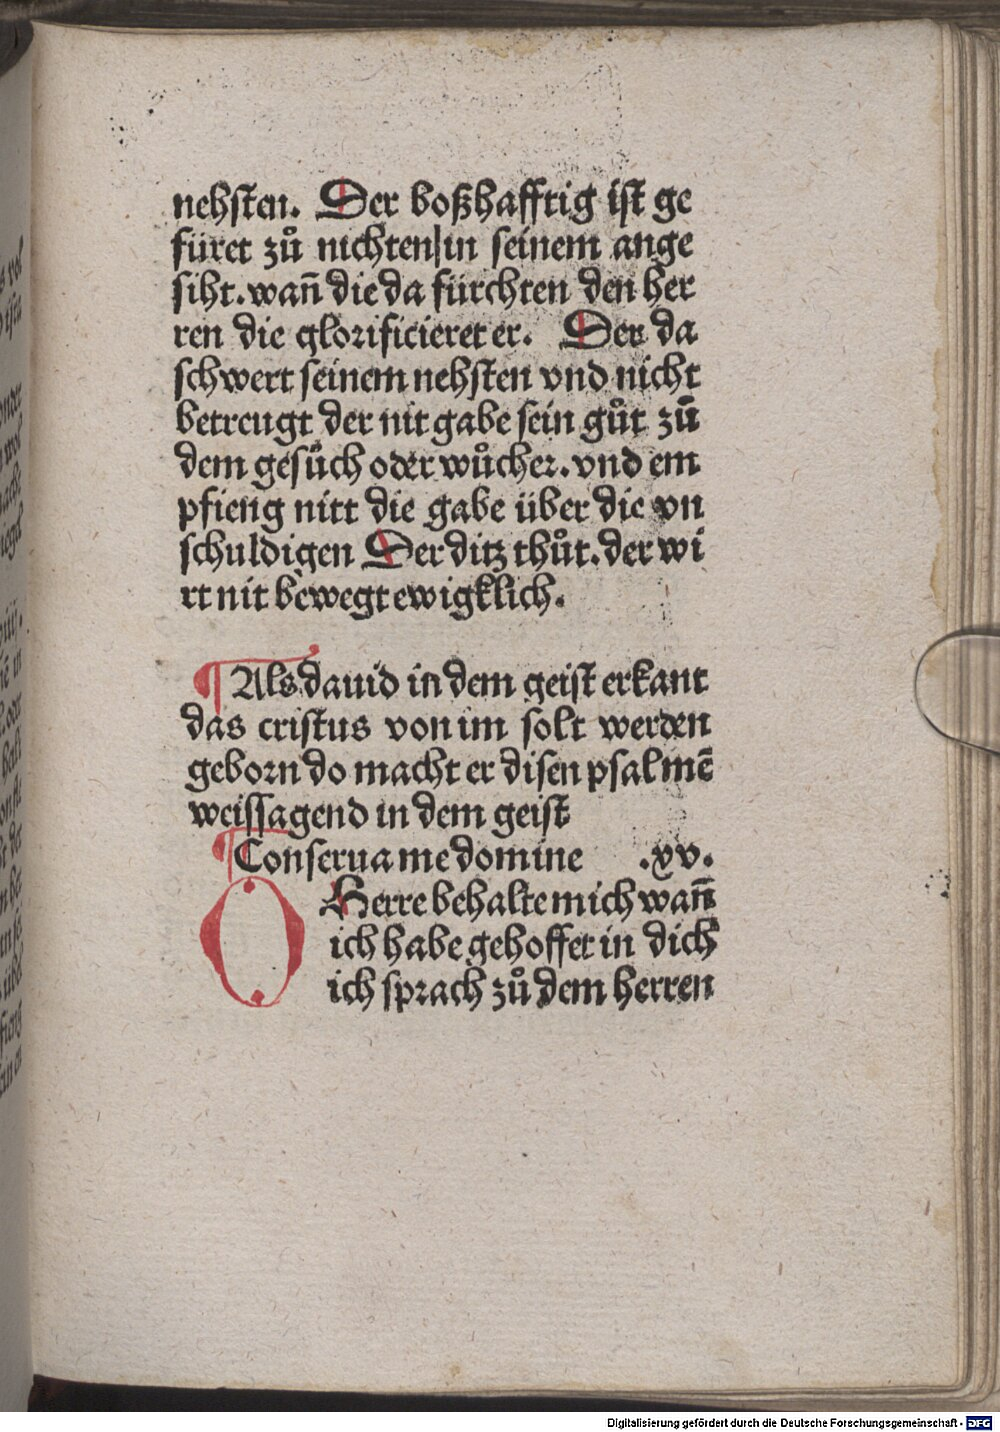 nehsten. Der boßhafftig ist ge
füret zů nichten|in seinem ange
siht. wañ die da fürchten den her
ren die glorificieret er. Der da
schwert seinem nehsten vnd nicht
betreugt der nit gabe sein gůt zū
dem gesůch oder wůcher. vnd em
pfieng nitt die gabe über die vn
schuldigen Der ditz thůt. der wi
rt nit bewegt ewigklich.
¶ Als dauid in dem geist erkant
das cristus von im solt werden
geborn do macht er disen psalmē
weissagend in dem geist
¶ Conserua me domine .xv.
O Herre behalte mich wañ
ich habe gehoffet in dich
ich sprach zů dem herren
Digitalisierung gefördert durch die Deutsche Forschungsgemeinschaft - DFG